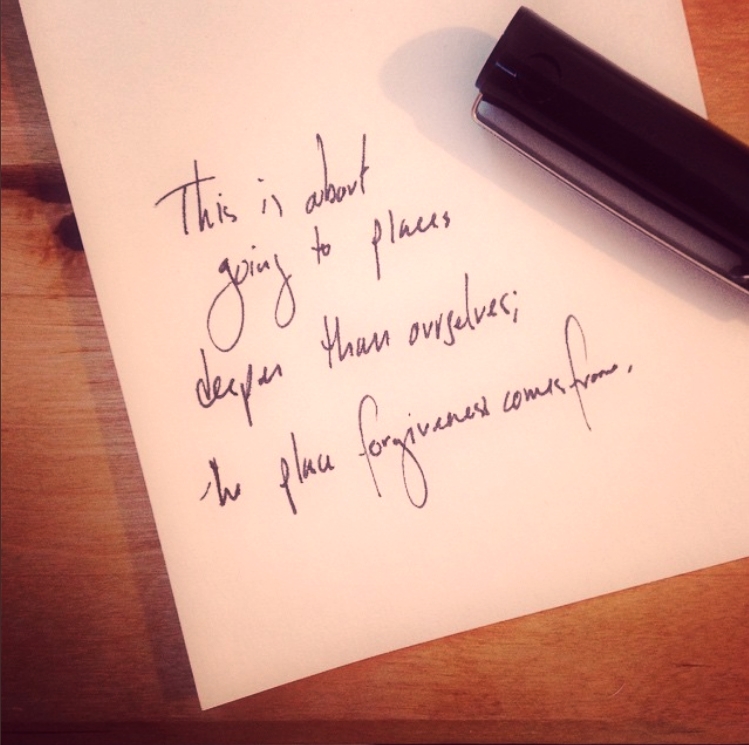 This is about
going to places
deeper than ourselves;
the place forgiveness comes from.